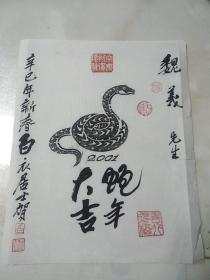 魏義
先生
2001
蛇年
大吉
辛巳年新春百衣居士贺